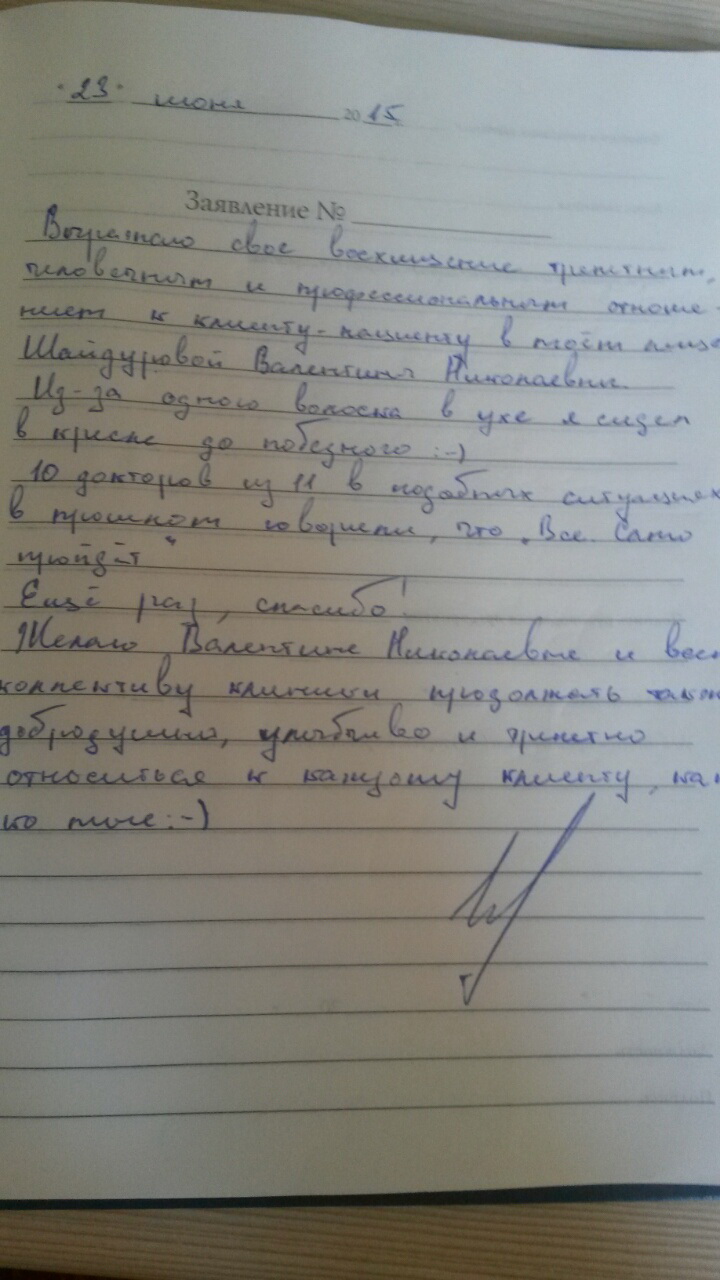 "23" июня 2015
Заявление №
Выражаю свое восхищение трепетным,
человечным и профессиональным отноше-
нием к клиенту-пациенту в моём лице
Шайдуровой Валентины Николаевны.
Из-за одного волоска в ухе я сидел
в кресле до победного :-)
10 докторов из 11 в подобных ситуациях
в прошлом говорили, что "Все само
пройдёт"
Ещё раз, спасибо!
Желаю Валентине Николаевне и всему
коллективу клиники продолжать также
добродушно, улыбчиво и трепетно
относиться к каждому клиенту, как
ко мне :-)